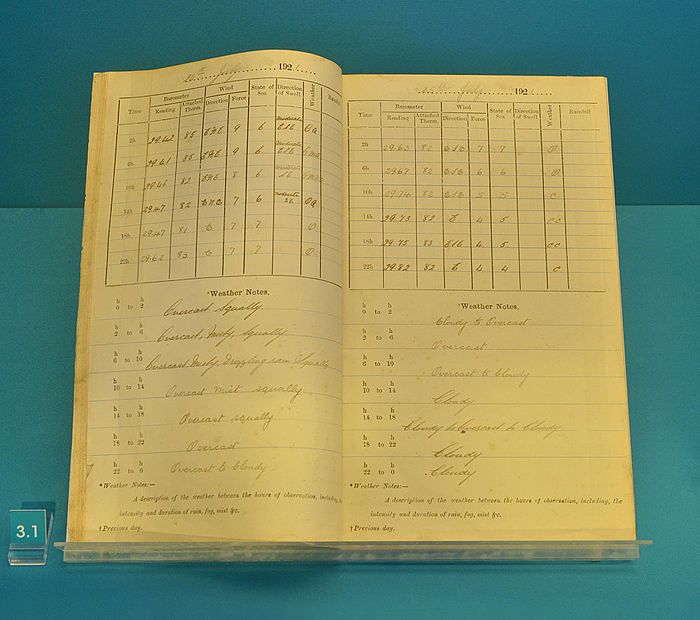 24th July 192
Barometer Wind State of Sea Direction of Swell Weather Rainfall
Time Reading Attached Therm. Direction Force
2h 29.42 85 ENE 9 6 Moderate ESE
6h 29.41 85 ENE 9 6 Moderate ESE
10h 29.46 82 ENE 8 6 Moderate
14h 29.47 82 ENE 7 6 moderate SE
18h 29.47 81 7 7 O
22h 29.62 83 7 7 O
*Weather Notes.
h 0 to h 2 Overcast Squally
h 2 to h 6 Overcast, Misty, Squally
h 6 to h 10 Overcast Misty, Drizzling rain Squally
h 10 to h 14 Overcast mist squally
h 14 to h 18 Overcast squally
h 18 to h 22 Overcast
h 22 to h 0 Overcast to Cloudy
*Weather Notes:—
A description of the weather between the hours of observation, including, the
intensity and duration of rain, fog, mist &c.
†Previous day.
25th July 192
Barometer Wind State of Sea Direction of Swell Weather Rainfall
Time Reading Attached Therm. Direction Force
2h 29.63 82 ESE 7 7 O
6h 29.67 82 ESE 6 6 O
10h 29.74 82 ESE 5 5 C
14h 29.73 82 E 4 5 CC
18h 29.75 83 ESE 4 5 CC
22h 29.82 82 E 4 4 C
*Weather Notes.
h 0 to h 2 Cloudy to Overcast
h 2 to h 6 Overcast
h 6 to h 10 Overcast to Cloudy
h 10 to h 14 Cloudy
h 14 to h 18 Cloudy to Overcast to Cloudy
h 18 to h 22 Cloudy
h 22 to h 0 Cloudy
*Weather Notes:—
A description of the weather between the hours of observation, including, the
intensity and duration of rain, fog, mist &c.
†Previous day.
3.1